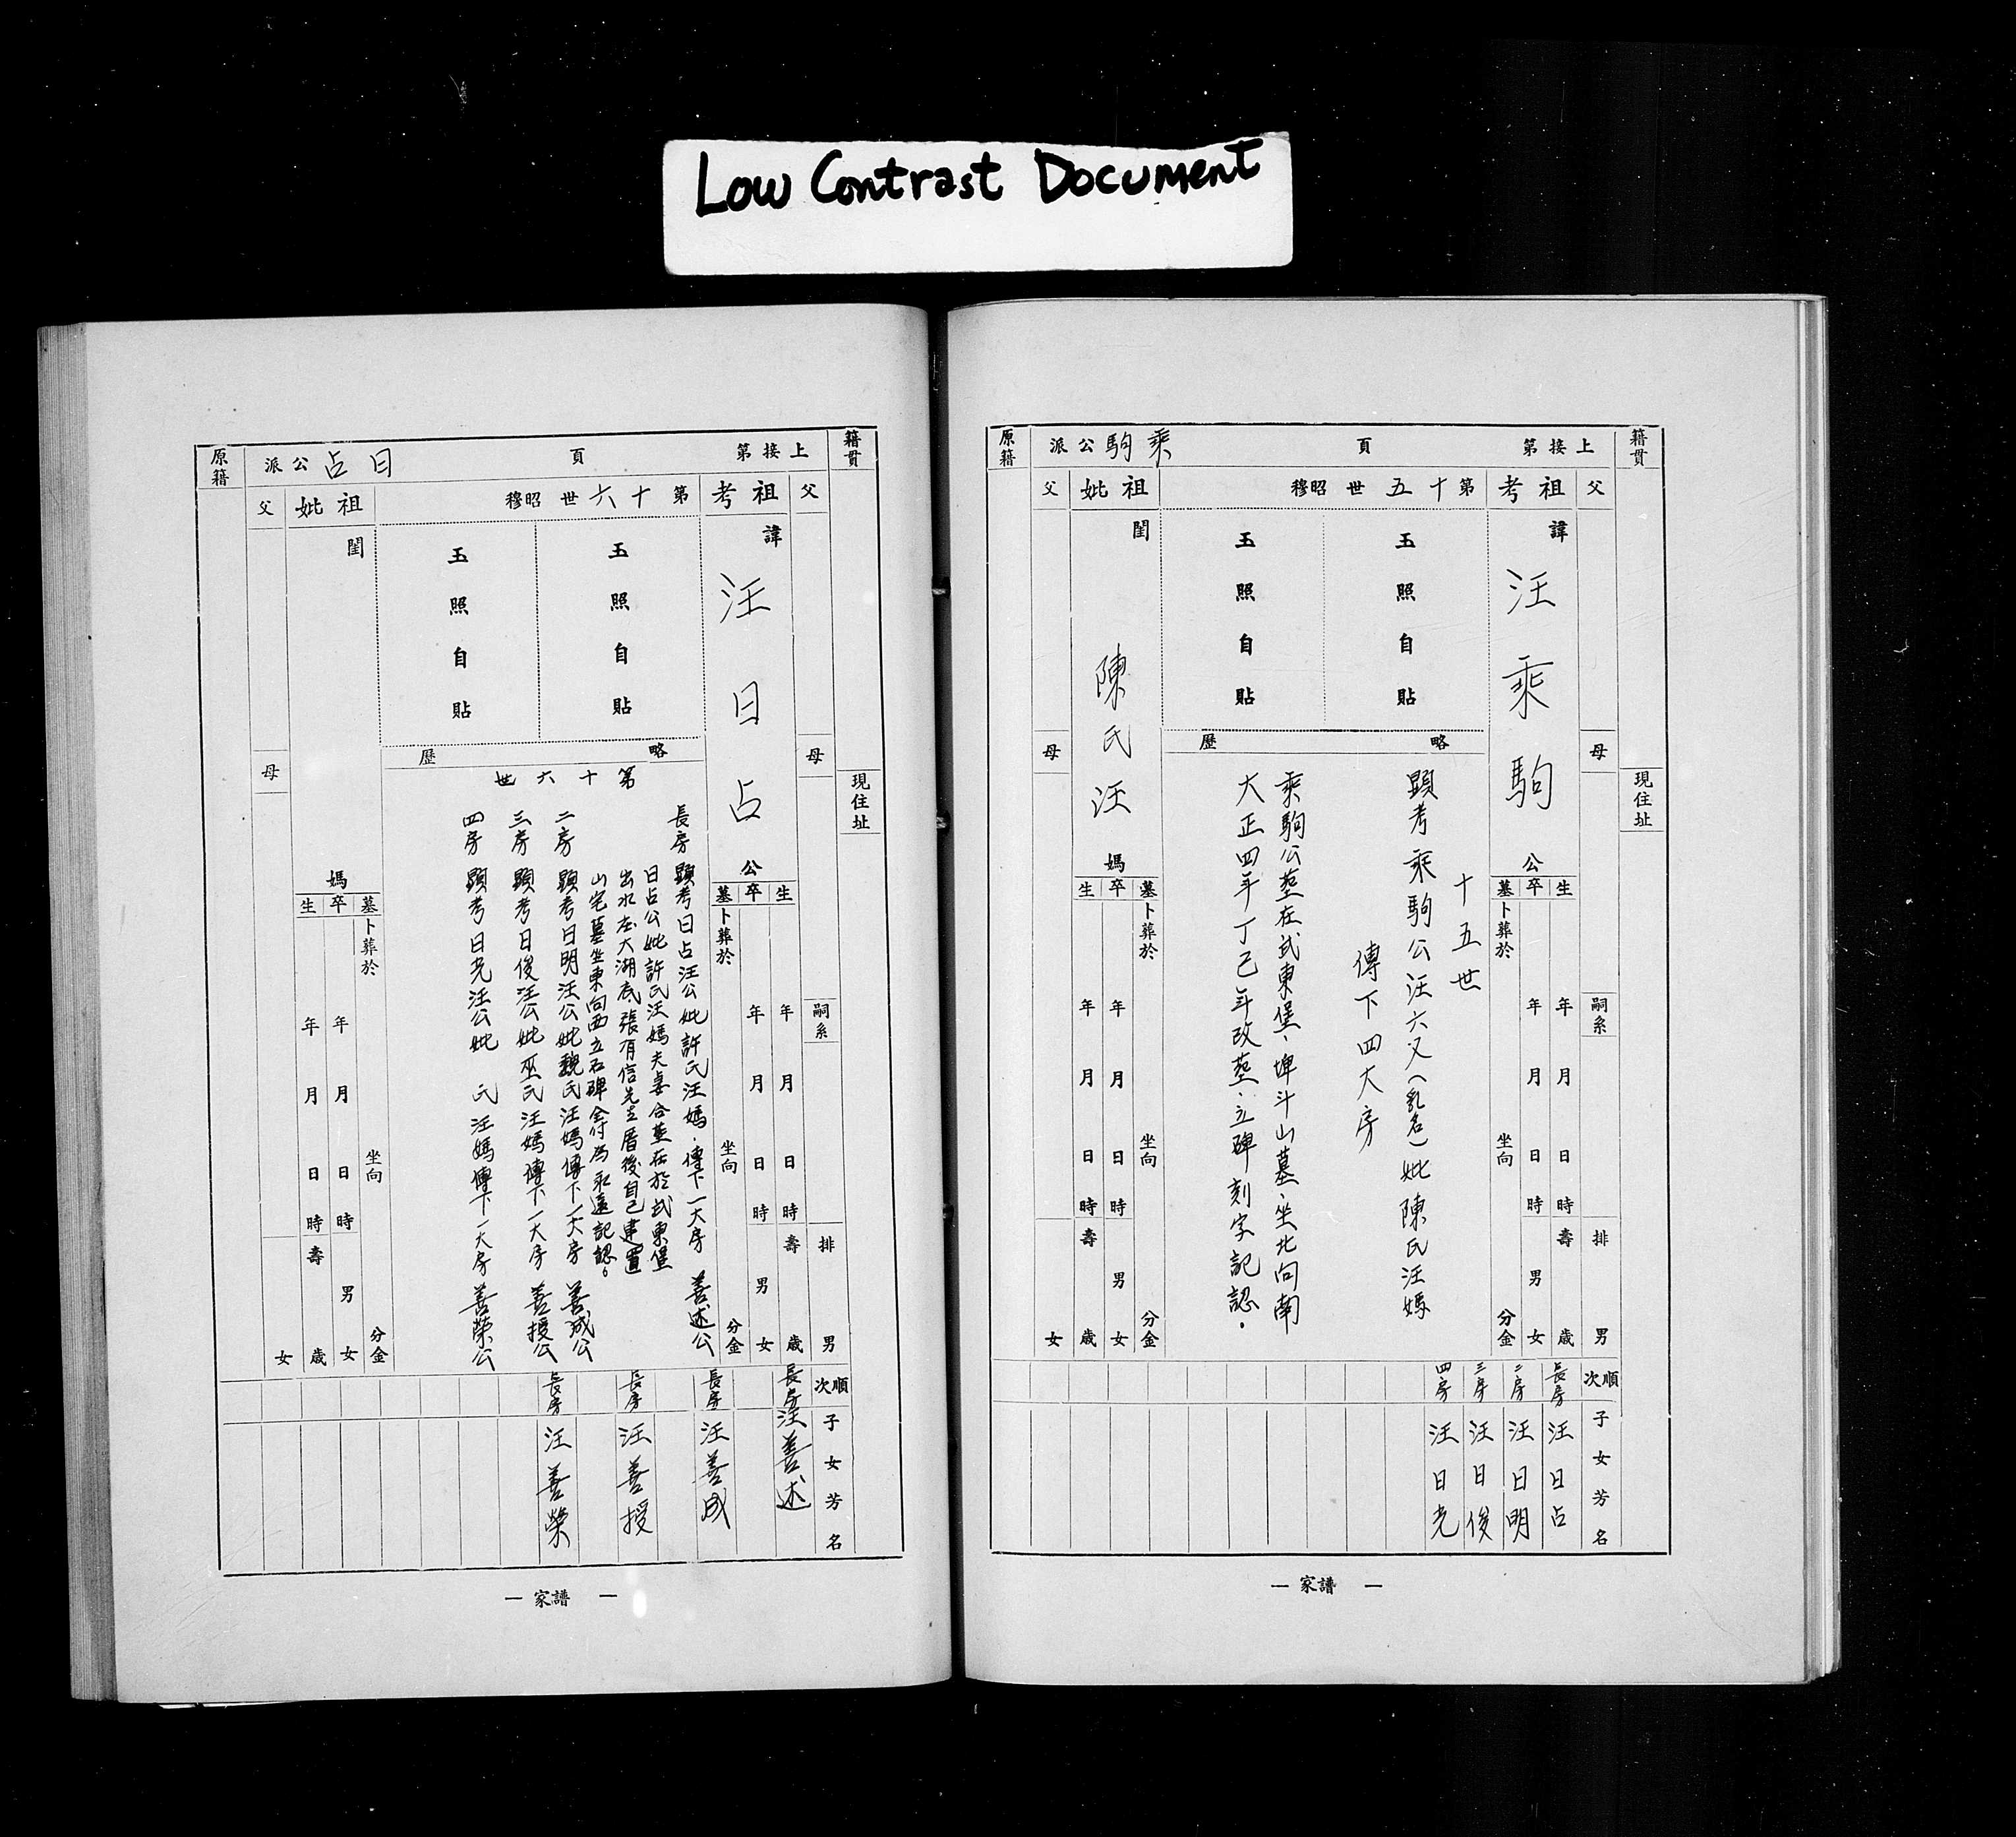 Low Contrast Document
籍貫
現住址
上接第 頁 乘駒公派
原籍
父
母
嗣系
排
男
祖考
諱
汪乘駒
公
生 年 月 日 時 壽 歲
卒 年 月 日 時 男 女
墓 卜葬於 坐向 分金
第十五世 昭穆
玉照自貼
玉照自貼
略歷
十五世
顯考乘駒公汪六又(乳名)妣陳氏汪媽
傳下四大房
乘駒公墓在武東堡、埤斗山墓、坐北向南
大正四年丁己年改墓、立碑刻字記認.
祖妣
閨
陳氏汪
媽
墓 卜葬於 坐向 分金
卒 年 月 日 時 男 女
生 年 月 日 時 壽 歲
父
母
女
順次
子女芳名
長房 汪日占
二房 汪日明
三房 汪日俊
四房 汪日光
一 家譜 一
籍貫
現住址
上接第 頁 日占公派
原籍
父
母
嗣系
排
男
祖考
諱
汪日占
公
生 年 月 日 時 壽 歲
卒 年 月 日 時 男 女
墓 卜葬於 坐向 分金
第十六世 昭穆
玉照自貼
玉照自貼
略歷
第十六世
長房 顯考日占汪公妣許氏汪媽.傳下一大房 善述公
日占公妣許氏汪媽夫妻合墓在於武東堡
出水庄大湖底張有信先生厝後自己建置
山宅墓坐東向西立石碑全付為永遠記認。
二房 顯考日明汪公妣魏氏汪媽傳下一大房 善成公
三房 顯考日俊汪公妣巫氏汪媽傳下一大房 善授公
四房 顯考日光汪公妣 氏汪媽傳下一大房 善榮公
祖妣
閨
媽
墓 卜葬於 坐向 分金
卒 年 月 日 時 男 女
生 年 月 日 時 壽 歲
父
母
女
順次
子女芳名
長房 汪善述
長房 汪善成
長房 汪善授
長房 汪善榮
一 家譜 一